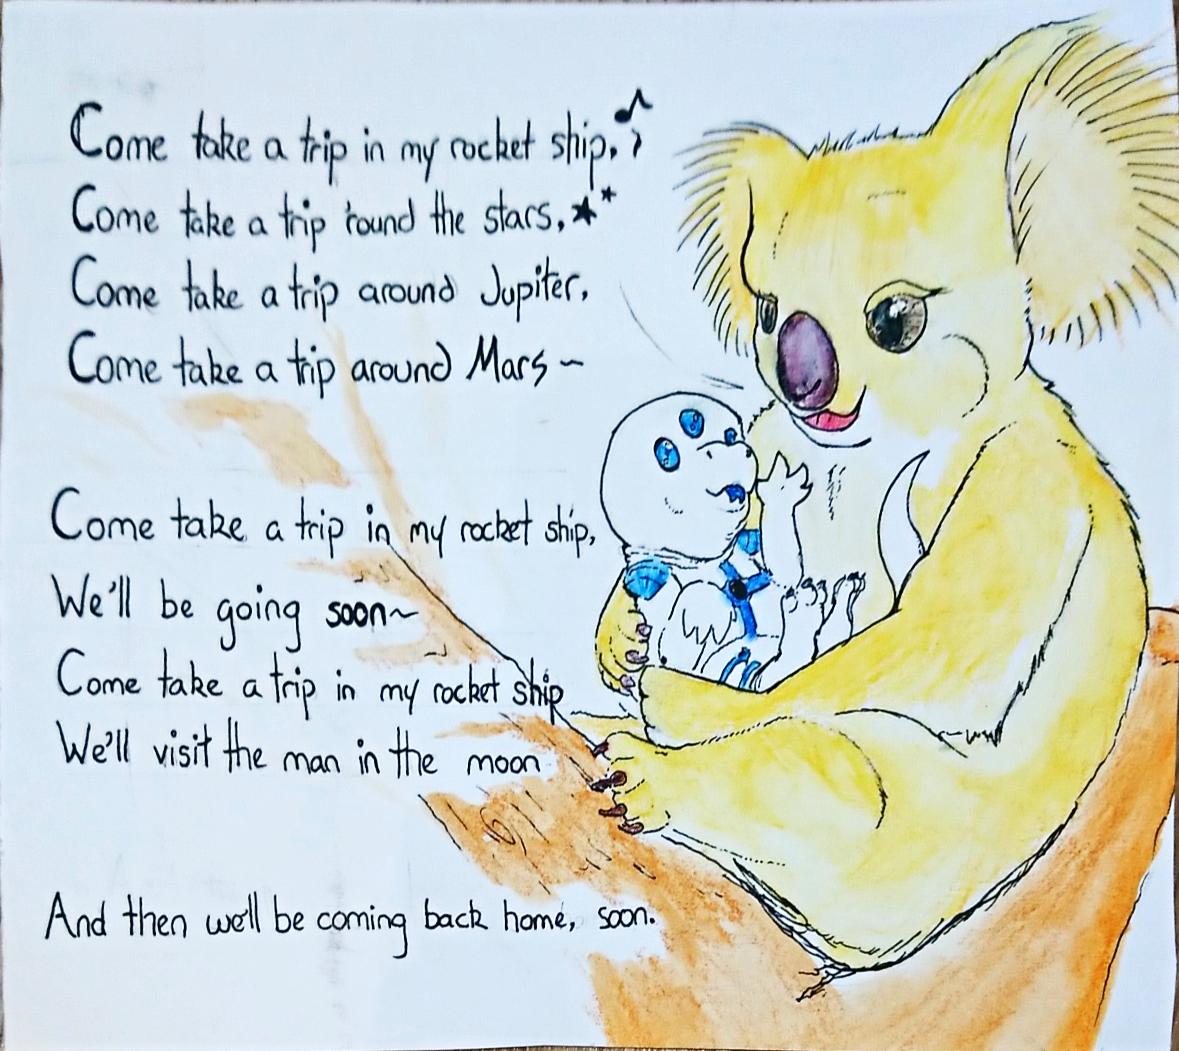 Come take a trip in my rocket ship,
Come take a trip 'round the stars,
Come take a trip around Jupiter,
Come take a trip around Mars ~
Come take a trip in my rocket ship,
We'll be going soon~
Come take a trip in my rocket ship
We'll visit the man in the moon
And then we'll be coming back home, soon.